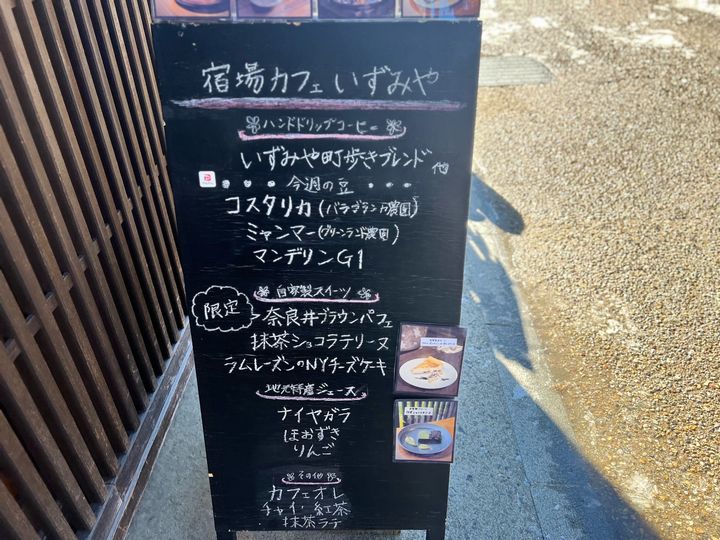 宿場カフェ いずみや
ハンドドリップコーヒー
いずみや町歩きブレンド 他
今週の豆
コスタリカ(バラブランカ農園)
ミャンマー(グリーンランド農園)
マンデリンG1
自家製スイーツ
限定
奈良井ブラウンパフェ
抹茶ショコラテリーヌ
ラムレーズンのNYチーズケーキ
地元特産ジュース
ナイヤガラ
ほおずき
りんご
その他
カフェオレ
チャイ・紅茶
抹茶ラテ